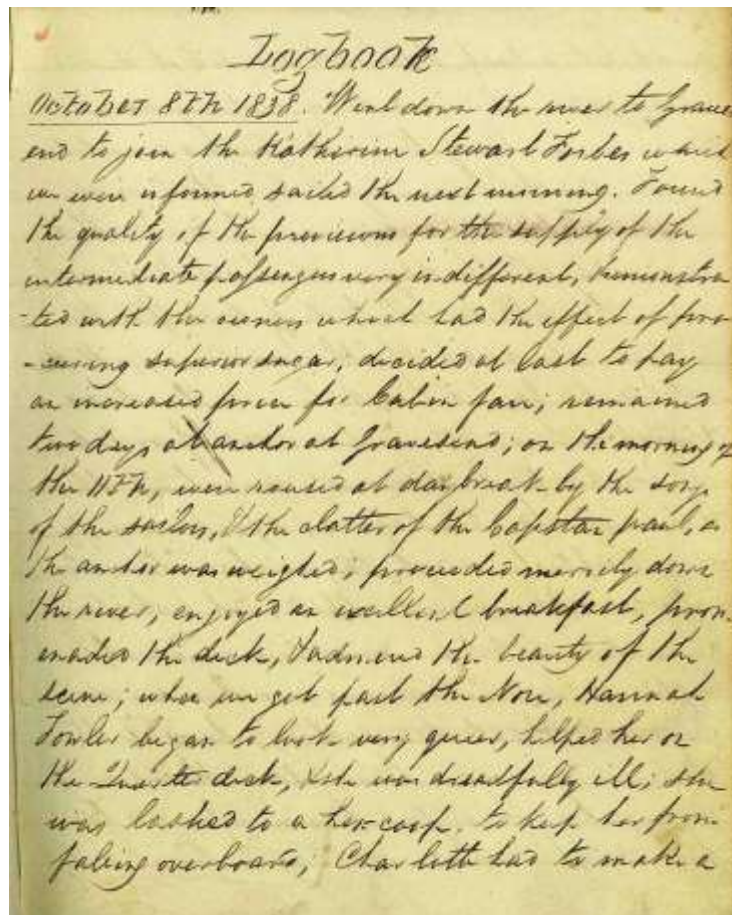 Logbook
October 8th 1838. Went down the river to Graves
end to join the Katherine Stewart Forbes which
we were informed sailed the next morning. Found
the quality of the provisions for the supply of the
intermediate passengers very indifferent, remonstra
-ted with the owners which had the effect of pro
-curing superior sugar, decided at last to pay
an increased price for Cabin fare; remained
two days at anchor at Gravesend; on the morning of
the 11th, were roused at daybreak by the song
of the sailors, & the clatter of the Capstan paul, as
the anchor was weighed; proceeded merrily down
the river, enjoyed an excellent breakfast, prom-
enaded the deck, & admired the beauty of the
scene; when we got past the Nore, Hannah
Fowler began to look very queer, helped her on
the Quarter deck, & she was dreadfully ill; she
was lashed to a hen-coop to keep her from
falling overboard; Charlotte had to make a